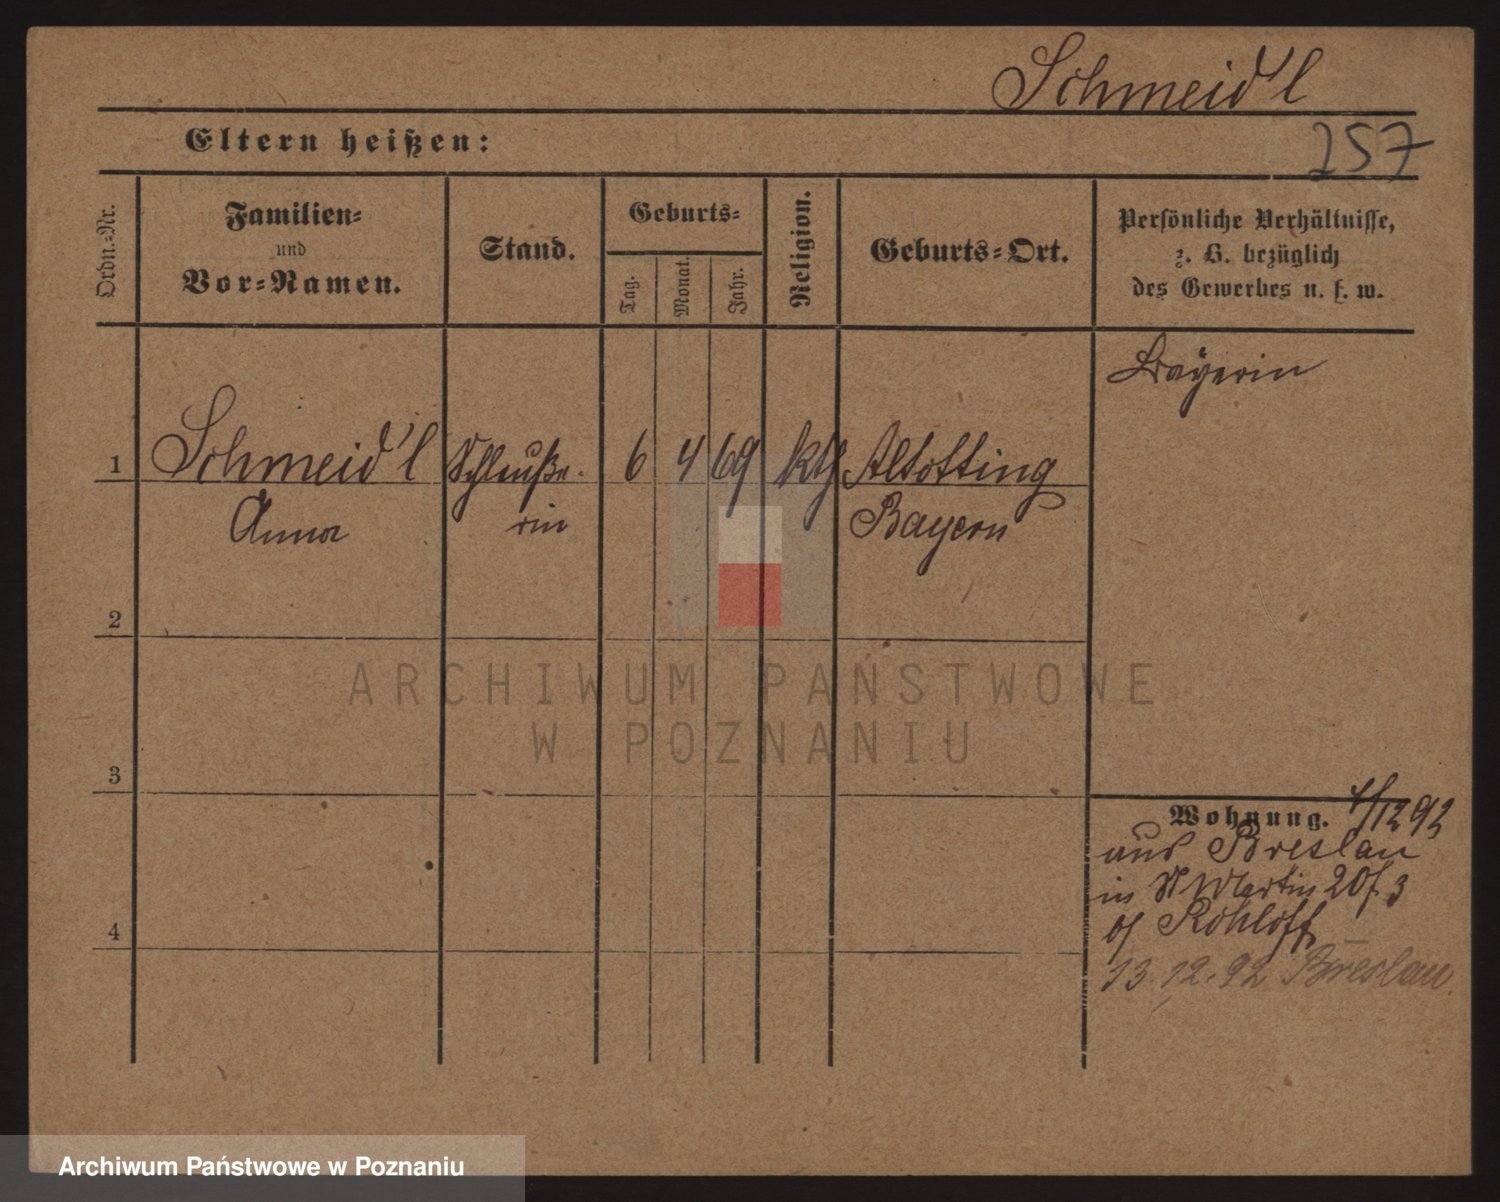 Schmeid'l
257
Eltern heißen:
Ordn.-Nr.
Familien-
und
Vor-Namen.
Stand.
Geburts-
Tag.
Monat.
Jahr.
Religion.
Geburts-Ort.
Persönliche Verhältnisse,
z. B. bezüglich
des Gewerbes u. s. w.
Bayerin
1 Schmeid'l Schleuße- 6 4 69 kth Altötting
Anna rin Bayern
2
3
4
Wohnung. /12 92
aus Breslau
in St Martin 20 3
b/ Rohloff
13.12.92 Breslau
ARCHIWUM PAŃSTWOWE
W POZNANIU
Archiwum Państwowe w Poznaniu